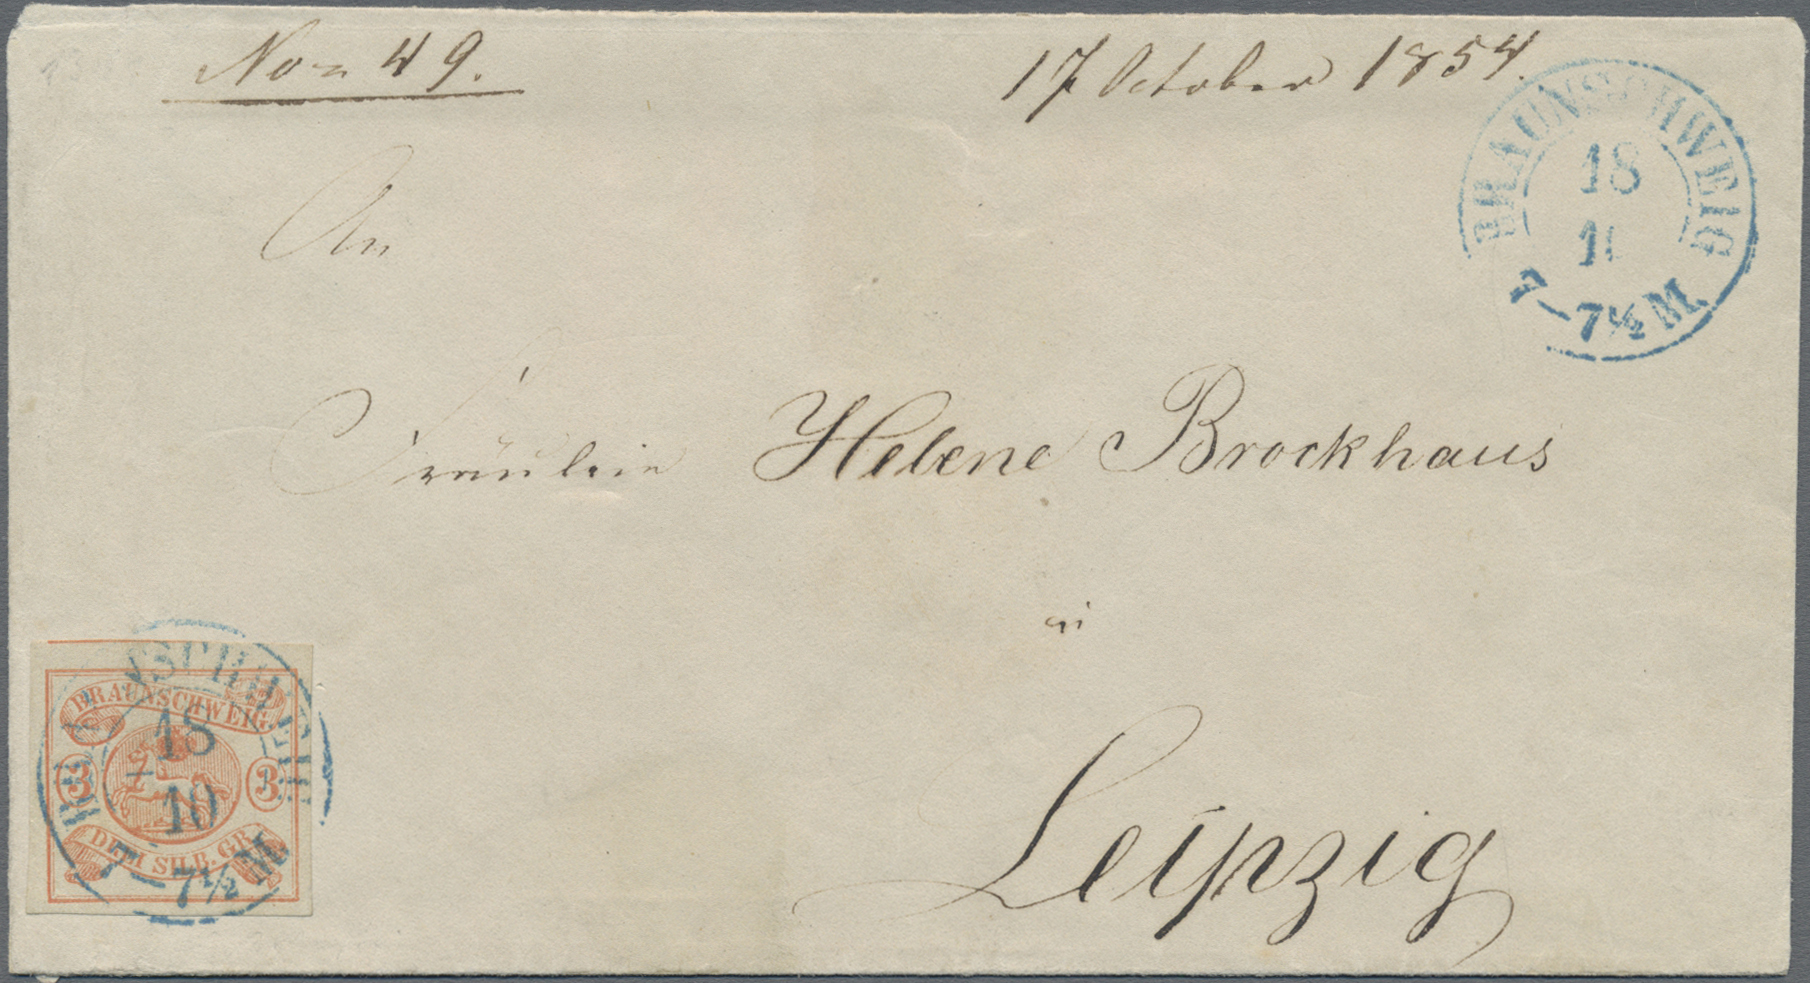 No 49.
17 October 1854.
BRAUNSCHWEIG
18
10
7-7½ M.
An
Fräulein Helene Brockhaus
in
Leipzig
BRAUNSCHWEIG
3 3
DREI SILB. GR.
BRAUNSCHWEIG
18
10
7-7½ M.